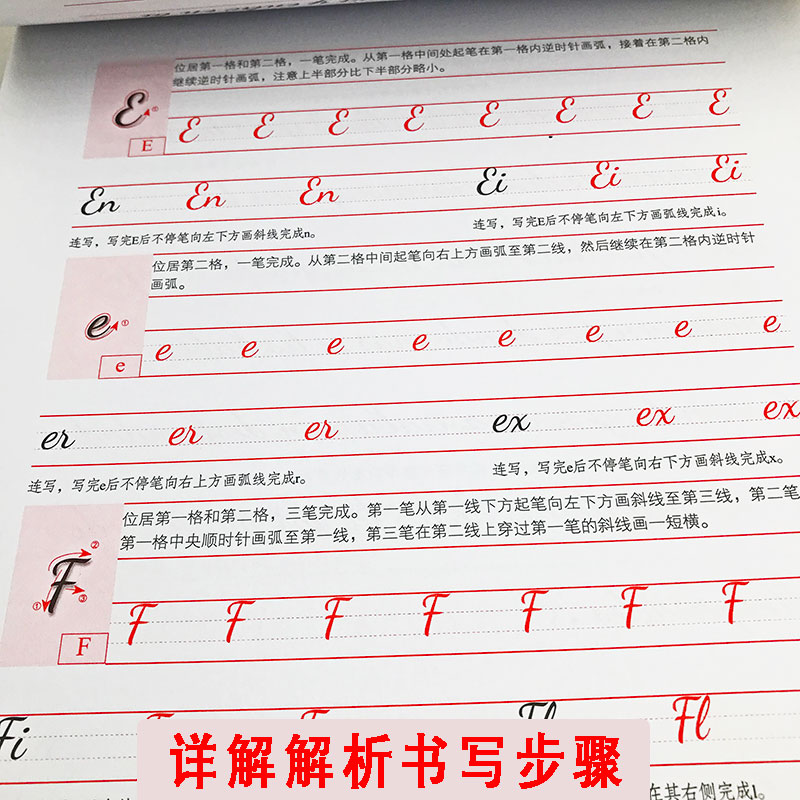 位居第一格和第二格，一笔完成。从第一格中间处起笔在第一格内逆时针画弧，接着在第二格内
继续逆时针画弧，注意上半部分比下半部分略小。
E ①
E
E E E E E E E E
En En En Ei Ei Ei
连写，写完E后不停笔向左下方画斜线完成n。 连写，写完E后不停笔向左下方画弧线完成i。
位居第二格，一笔完成。从第二格中间起笔向右上方画弧至第二线，然后继续在第二格内逆时针
画弧。
e ①
e
e e e e e e e e
er er er ex ex ex
连写，写完e后不停笔向右上方画弧线完成r。 连写，写完e后不停笔向右下方画斜线完成x。
位居第一格和第二格，三笔完成。第一笔从第一线下方起笔向左下方画斜线至第三线，第二笔
第一格中央顺时针画弧至第一线，第三笔在第二线上穿过第一笔的斜线画一短横。
② F ① ③
F
F F F F F F F
Fi Fl Fl
详解解析书写步骤
在其右侧完成l。